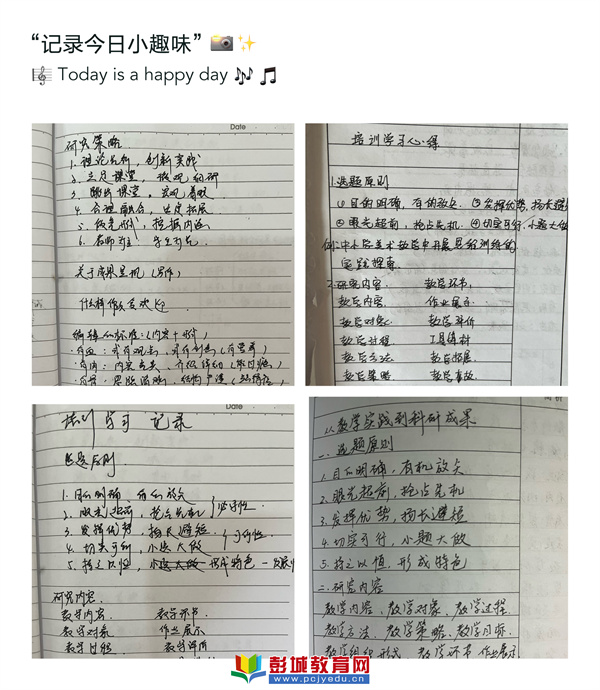 “记录今日小趣味” 📷✨
🎼 Today is a happy day 🎶 🎵
Date
研究策略
1. 理论先行，创新实践
2. 立足课堂，微观调研
3. 跳出课堂，宏观着眼
4. 合理融合，出度拓展
6. 名师为主
关于成果呈现（写作）
什么样作品受欢迎
编辑的标准：（内容+形式）
培训学习心得
1. 选题原则
①目的明确，有的放矢 ③发挥优势，扬长避短
②眼光超前，抢占先机 ④切实可行，小题大做
例：中小学美术教学中开展思维训练的
实践探索
2. 研究内容 教学环节
教学内容 作业展示
教学对象 教学评价
教学过程 工具媒材
教学方法 教学拓展
教学策略 教学事故
Date
培训学习记录
选题原则
1. 目的明确 有的放矢
2. 眼光超前，抢占先机 必要性
3. 发挥优势，扬长避短 可行性
4. 切实可行，小题大做
5. 持之以恒，小题大做 形成特色
研究内容
教学内容 教学环节
教学对象 作业展示
教学过程 教学评价
从教学实践到科研成果
一、选题原则
1. 目的明确，有机放矢
2. 眼光超前，抢占先机
3. 发挥优势，扬长避短
4. 切实可行，小题大做
5. 持之以恒，形成特色
二、研究内容
教学内容、教学对象、教学过程
教学方法、教学策略、教学目标
教学组织形式、教学环节 作业展示
彭城教育网
www.pcjyedu.cn